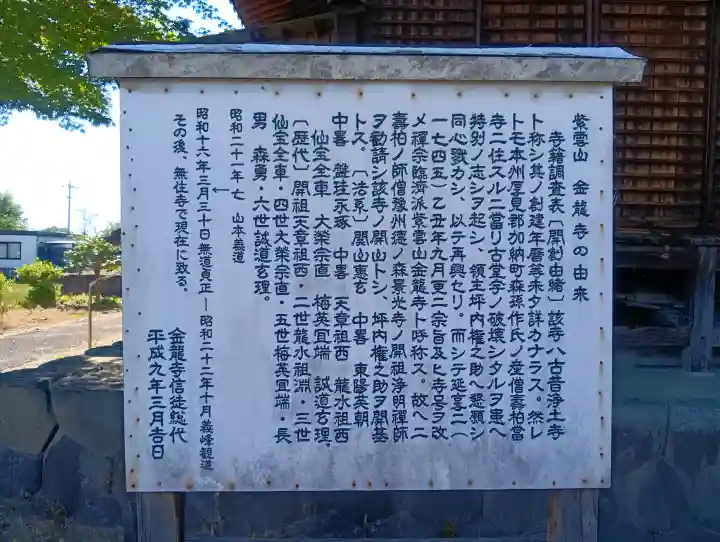 紫雲山　金龍寺の由来
寺籍調査表〔開創由緒〕該寺ハ古昔浄土寺
ト称シ其ノ創建年暦等未タ詳カナラス。然レ
トモ本州厚見郡加納町森孫作氏ノ産僧寿柏當
寺ニ住スルニ當リ古堂宇ノ破壊シタルヲ患ヘ
特別ノ志シヲ起シ、領主坪内権之助ヘ懇願シ
同心戮力シ、以テ再興セリ。而シテ延享二（
一七四五）乙丑年九月更ニ宗旨及ヒ寺号ヲ改
メ禅宗臨濟派紫雲山金龍寺ト呼称ス。故ヘニ
嘉柏ノ師僧豫州徳ノ森景光寺ノ開祖浄明禅師
ヲ勧請シ該寺ノ開山トシ、坪内権之助ヲ開基
トス。〔法系〕関山惠玄　中畧　東陽英朝
中畧　盤珪永琢　中畧　天章祖西　龍水祖西
仙宝全車　大榮宗直　梅英宜端　誠道玄理。
〔歴代〕開祖天章祖西・二世龍水祖淵・三世
仙宝全車・四世大榮宗直・五世梅英宜端・長
男　森勇・六世誠道玄理。
昭和二十一年七　山本義道
昭和十六年三月三十日無道貞正―昭和二十二年十月義峰観道
その後、無住寺で現在に致る。
金龍寺信徒総代
平成九年三月吉日